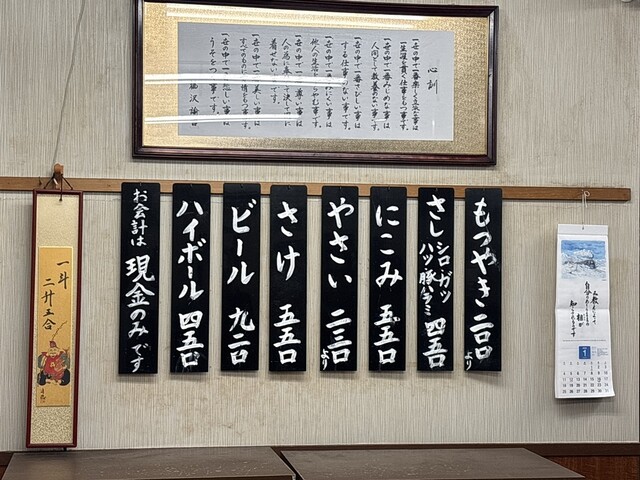 心訓
一世の中で一番楽しく立派な事は
一生涯を貫く仕事をもつ事です。
一世の中で一番みじめな事は
人間として教養のない事です。
一世の中で一番さびしい事は
する仕事のない事です。
一世の中で一番みにくい事は
他人の生活をうらやむ事です。
一世の中で一番尊い事は
人の為に奉仕して決して
着せない事です。
一世の中で一番美しい事は
すべてのものに愛情をもつ事です。
一世の中で一番悲しい事は
うそをつく事です。
もつやき 二〇〇より
さし シロ・ガツ
ハツ・豚ハラミ 四五〇
にこみ 五五〇
やさい 二三〇より
さけ 五五〇
ビール 九二〇
ハイボール 四五〇
お会計は 現金のみです
一斗
二升五合
1